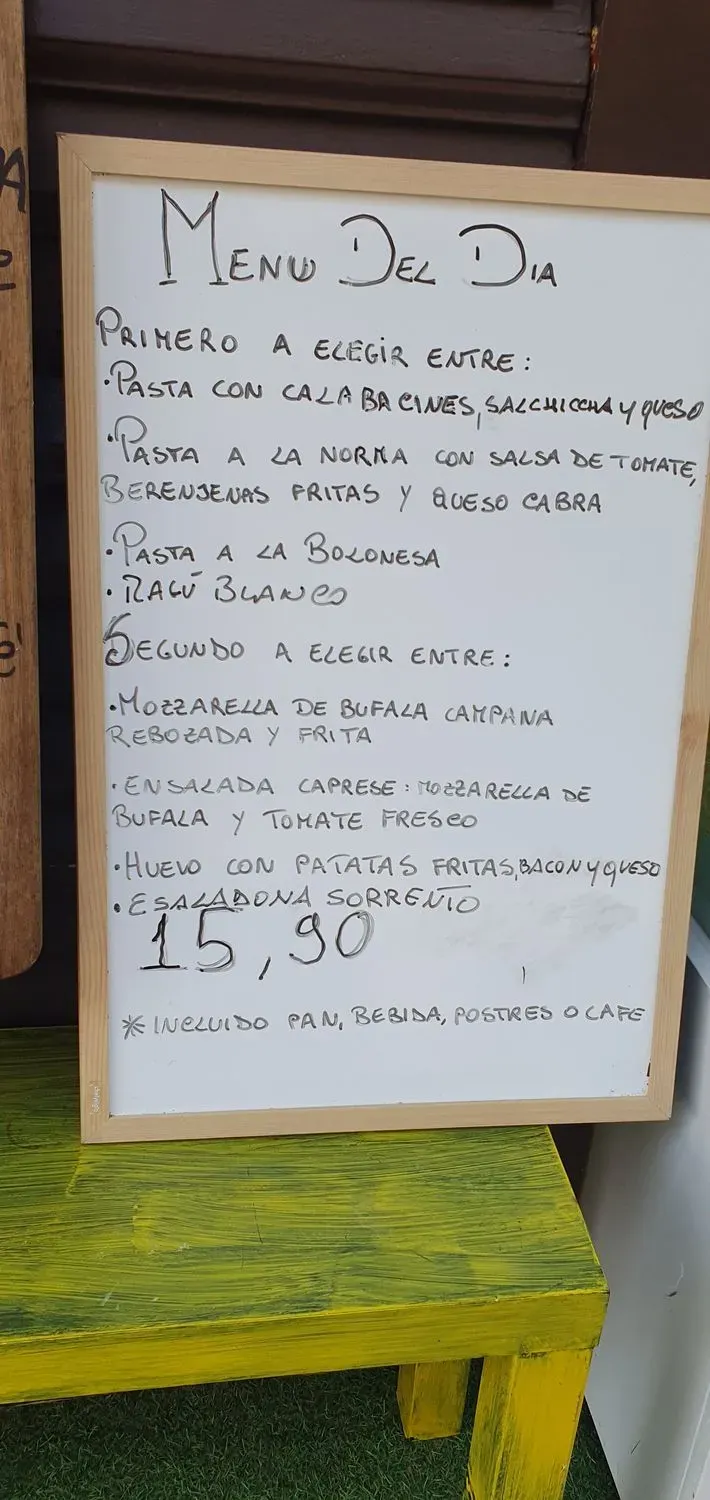 MENU DEL DIA
PRIMERO A ELEGIR ENTRE:
·PASTA CON CALABACINES, SALCHICCHA Y QUESO
·PASTA A LA NORMA CON SALSA DE TOMATE,
BERENJENAS FRITAS Y QUESO CABRA
·PASTA A LA BOLONESA
·RAGÚ BLANCO
SEGUNDO A ELEGIR ENTRE:
·MOZZARELLA DE BUFALA CAMPANA
REBOZADA Y FRITA
·ENSALADA CAPRESE: MOZZARELLA DE
BUFALA Y TOMATE FRESCO
·HUEVO CON PATATAS FRITAS, BACON Y QUESO
·ESALADONA SORRENTO
15,90
*INCLUIDO PAN, BEBIDA, POSTRES O CAFE